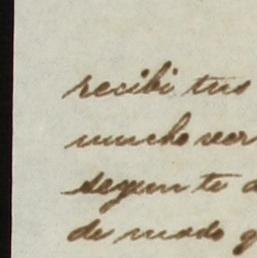 recibi tus
mucho ver
segun te
de modo